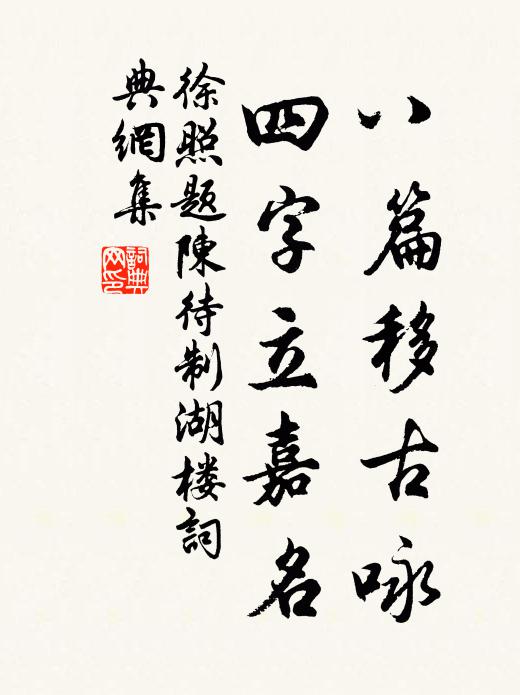 八篇移古咏
四字立嘉名
徐照题陳待制湖楼詞
典網集
詞典网印